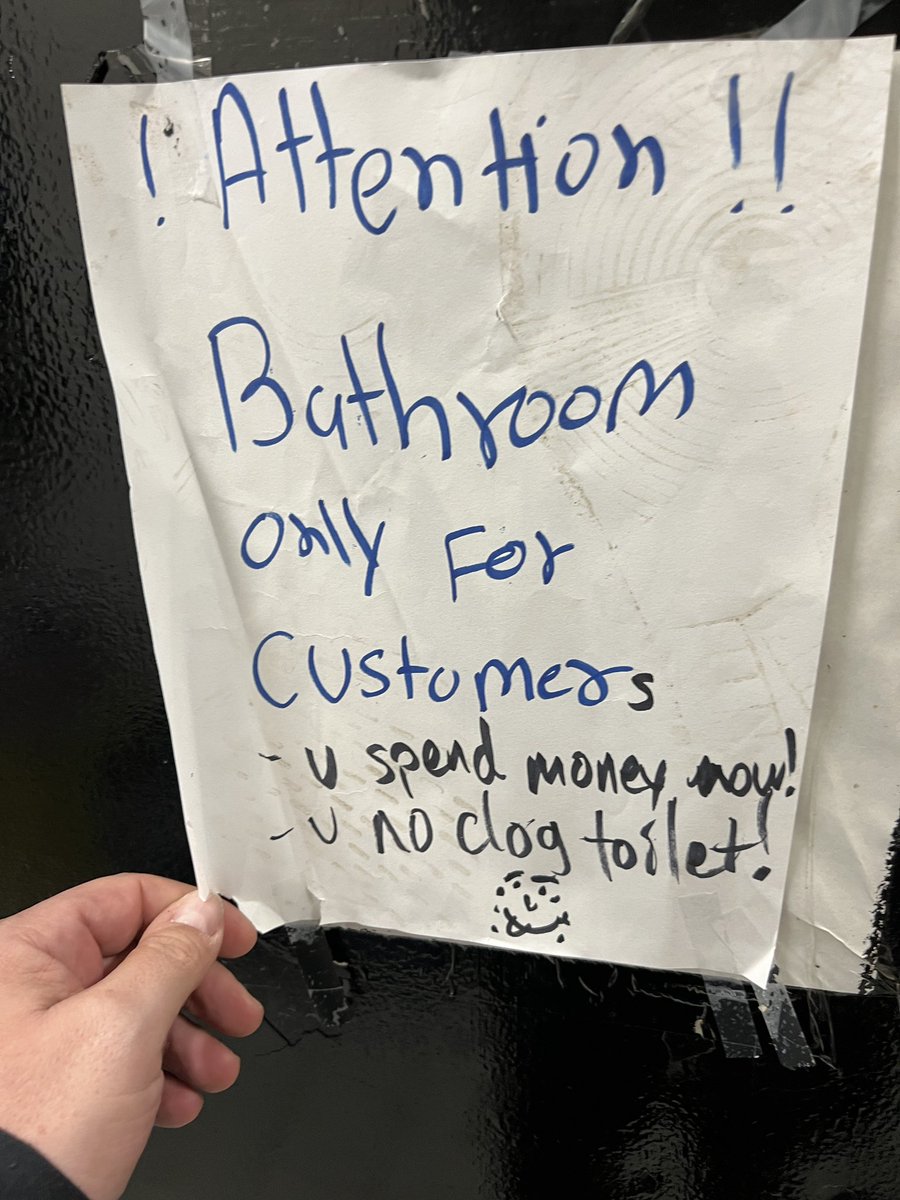 ! Attention !!
Bathroom
only For
Customers
- u spend money now!
- u no clog toilet!